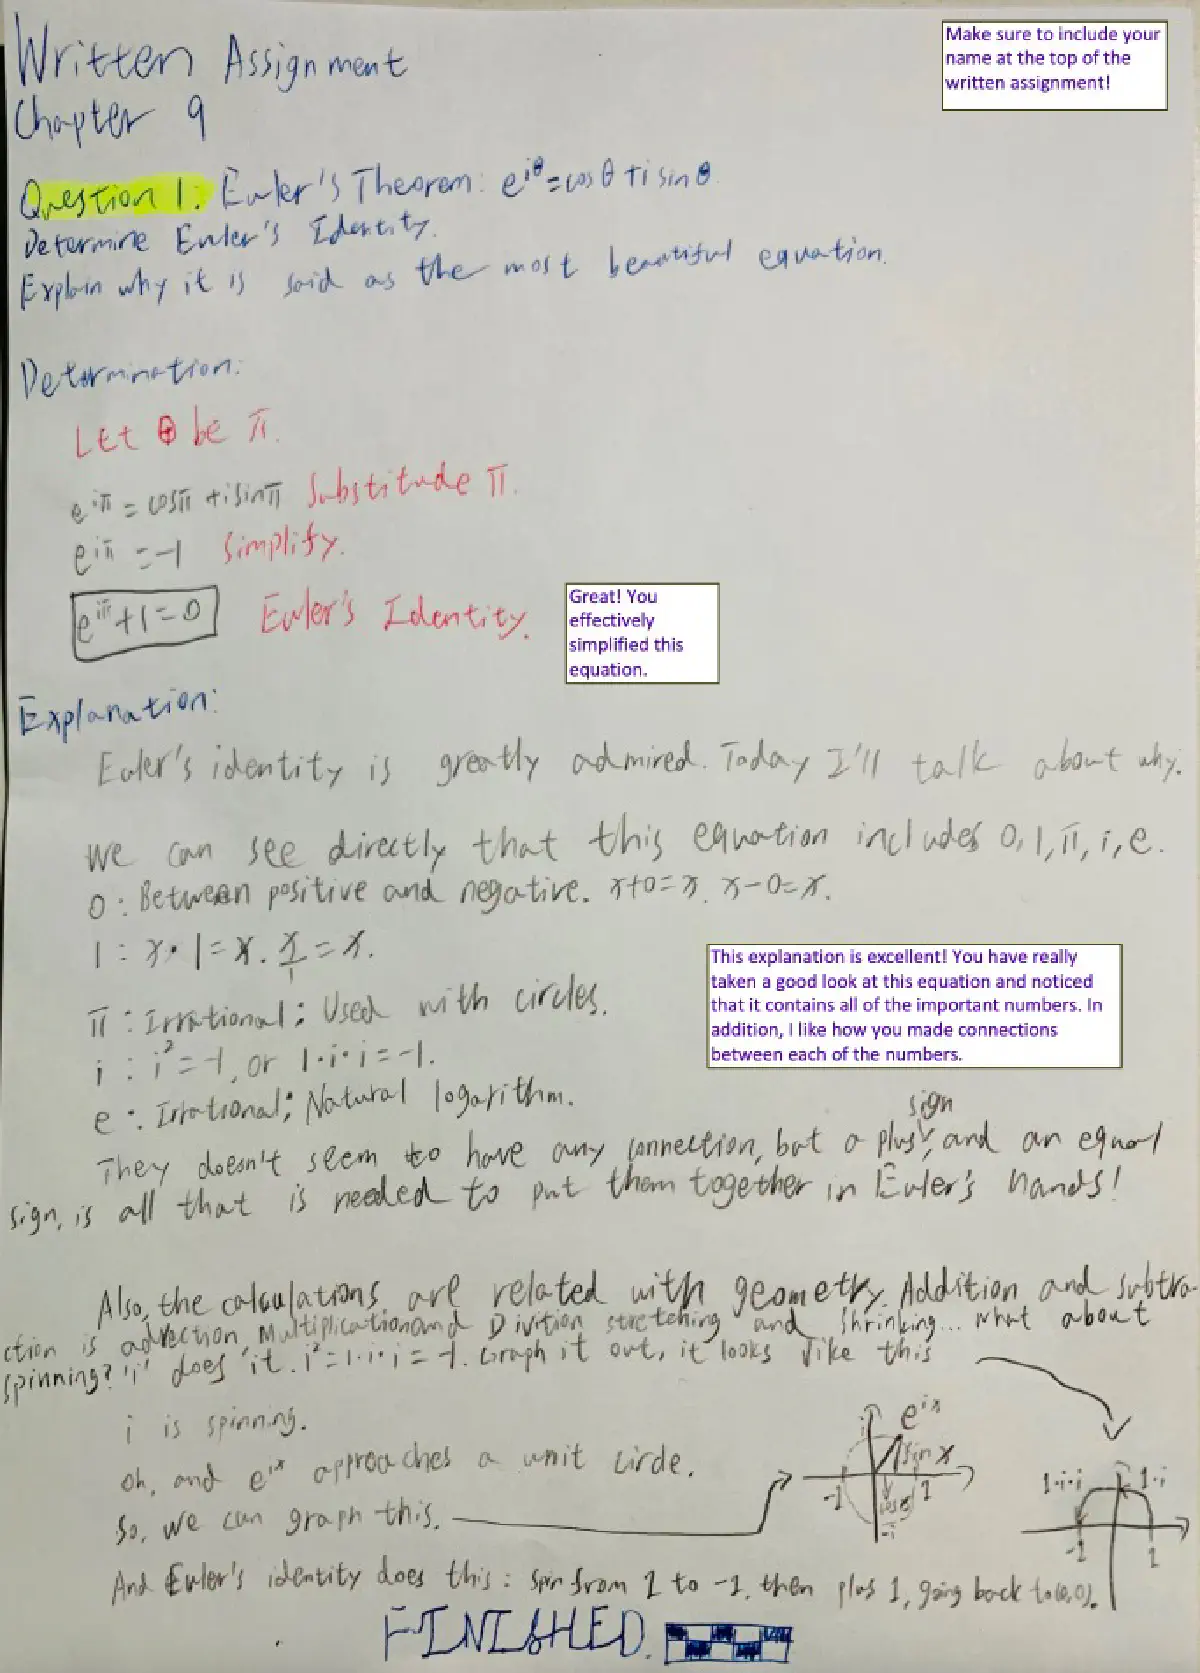 Written Assignment
Chapter 9
Make sure to include your
name at the top of the
written assignment!
Question 1: Euler's Theorem: e^{iθ}=cosθ+isinθ
Determine Euler's Identity.
Explain why it is said as the most beautiful equation.
Determination:
Let θ be π.
e^{iπ}=cosπ+isinπ Substitude π.
e^{iπ}=-1 Simplify.
e^{iπ}+1=0 Euler's Identity.
Great! You
effectively
simplified this
equation.
Explanation:
Euler's identity is greatly admired. Today I'll talk about why.
We can see directly that this equation includes 0, 1, π, i, e.
0: Between positive and negative. x+0=x. x-0=x.
1: x·1=x. x/1=x.
π: Irrational; Used with circles.
i: i²=-1, or 1·i·i=-1.
e: Irrational; Natural logarithm.
This explanation is excellent! You have really
taken a good look at this equation and noticed
that it contains all of the important numbers. In
addition, I like how you made connections
between each of the numbers.
They doesn't seem to have any connection, but a plus sign, and an equal
sign, is all that is needed to put them together in Euler's hands!
Also, the calculations are related with geometry. Addition and subtra-
ction is a direction, Multiplication and Divition stretching and shrinking... What about
spinning? 'i' does it. i²=1·i·i=-1. Graph it out, it looks like this
i is spinning.
Oh, and e^{ix} approaches a unit circle.
So, we can graph this.
i e^{ix}
sin x
-1 cos 1
-i
1·i·i 1·i
-1 1
And Euler's identity does this: spin from 1 to -1, then plus 1, going back to (0,0).
FINISHED.